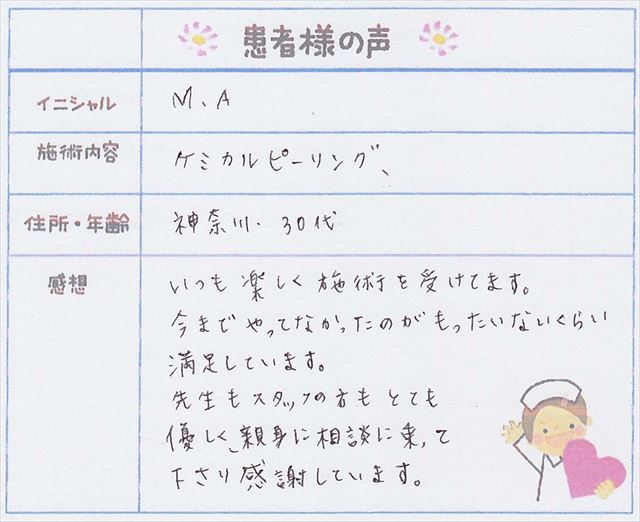 患者様の声
イニシャル M、A
施術内容 ケミカルピーリング、
住所・年齢 神奈川・30代
感想 いつも楽しく施術を受けてます。
今までやってなかったのがもったいないくらい
満足しています。
先生もスタッフの方もとても
優しく、親身に相談に乗って
下さり感謝しています。